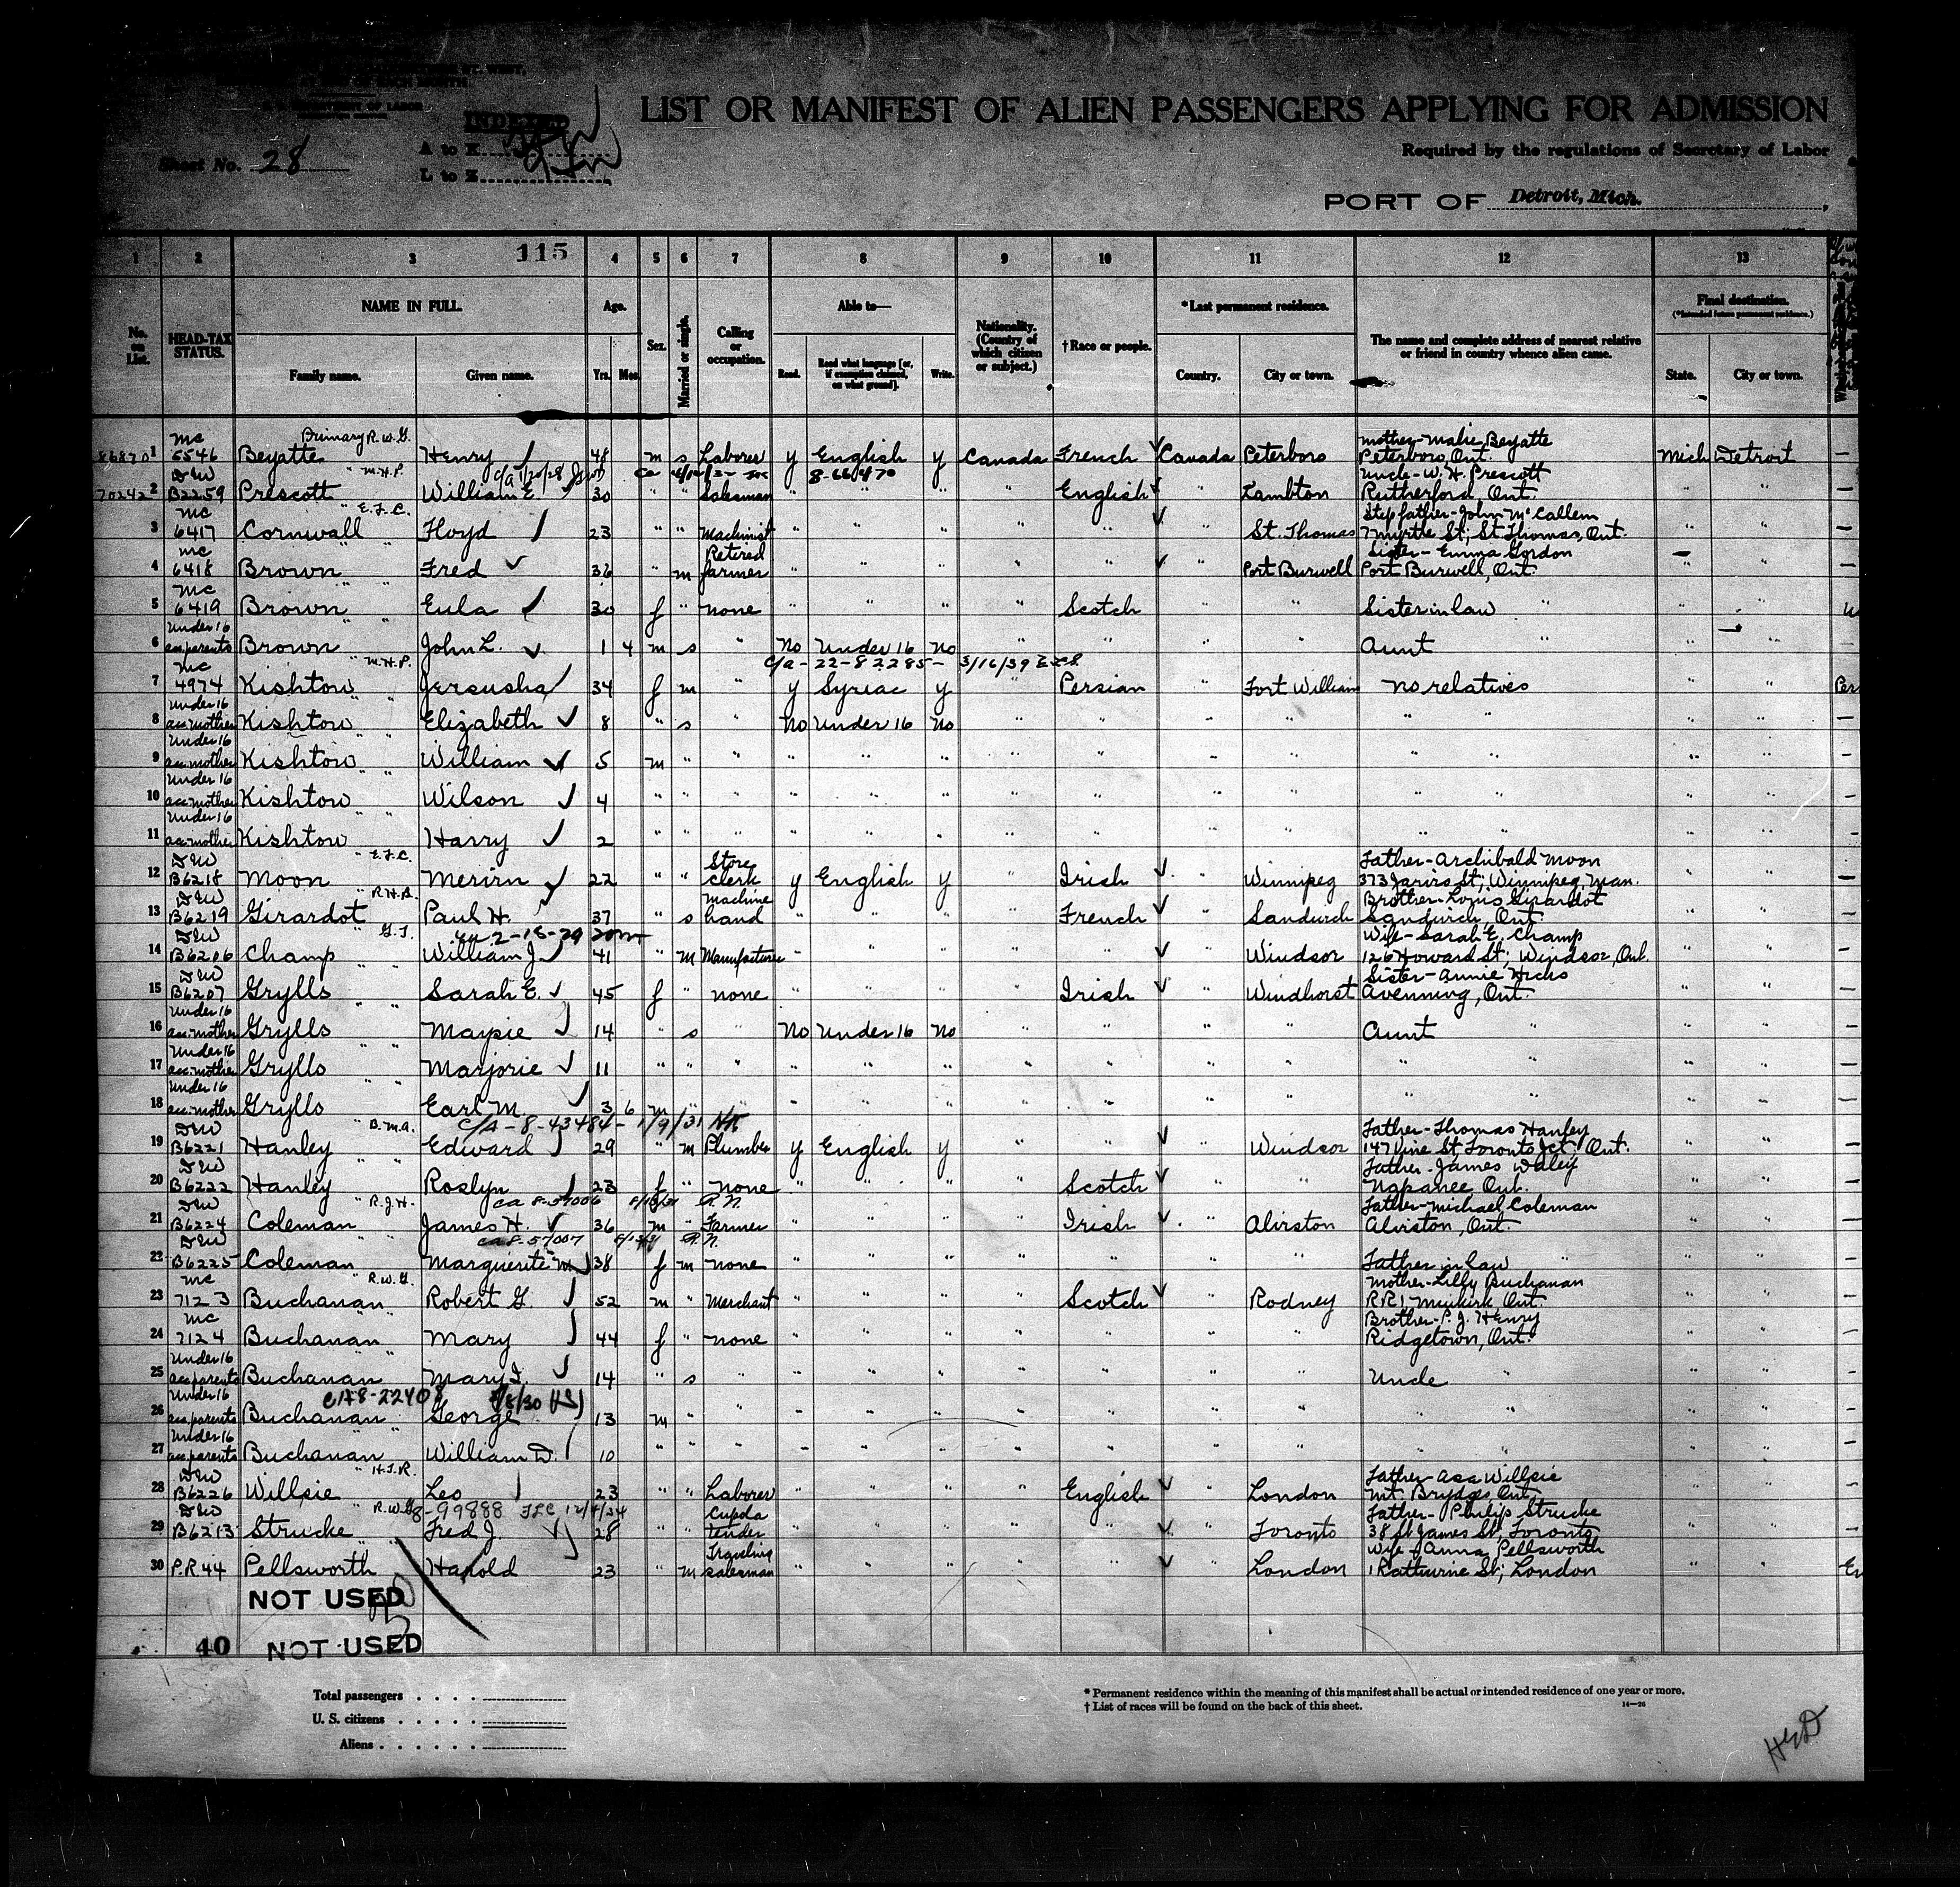 ST. WEST,
DEPARTMENT OF LABOR
INDEXED
LIST OR MANIFEST OF ALIEN PASSENGERS APPLYING FOR ADMISSION
A to K
Required by the regulations of Secretary of Labor
Sheet No. 28
L to Z
PORT OF Detroit, Mich.
1 2 3 115 4 5 6 7 8 9 10 11 12 13
No. on List.
HEAD-TAX STATUS.
NAME IN FULL.
Family name. Given name.
Age.
Yrs. Mos.
Sex.
Married or single.
Calling or occupation.
Able to—
Read. Read what language [or, if exemption claimed, on what ground]. Write.
Nationality. (Country of which citizen or subject.)
†Race or people.
*Last permanent residence.
Country. City or town.
The name and complete address of nearest relative or friend in country whence alien came.
Final destination.
(*Intended future permanent residence.)
State. City or town.
mc Primary R.W.G. mother-Malie Beyatte
1 5546 Beyatte Henry 48 m s Laborer y English y Canada French Canada Peterboro Peterboro, Ont. Mich Detroit
DW " M.H.P. 8-66470 Uncle-W.H. Prescott
70242 2 B2259 Prescott William E. 30 " " Salesman " " " " English " Lambton Rutherford, Ont. " "
mc " E.F.C. Stepfather-John McCallem
3 6417 Cornwall Floyd 23 " " Machinist " " " " " " St. Thomas 7 Myrtle St; St Thomas, Ont. " "
mc " " Retired Sister-Emma Gordon
4 6418 Brown Fred 36 " m farmer " " " " " " Port Burwell Port Burwell, Ont. " "
mc " "
5 6419 Brown Eula 30 f " none " " " " Scotch " " Sister in law " " "
Under 16 " "
6 acc.parents Brown John L. 1 4 m s " No Under 16 No " " " " Aunt " "
mc " M.H.P. C/a-22-82285- 3/16/39
7 4974 Kishtow Jerusha 34 f m " y Syriac y " Persian " Fort William no relatives " " Per
Under 16 " "
8 acc.mother Kishtow Elizabeth 8 " s " No Under 16 No " " " " " " " "
Under 16 " "
9 acc.mother Kishtow William 5 m " " " " " " " " " " " " "
Under 16 " "
10 acc.mother Kishtow Wilson 4 " " " " " " " " " " " " " "
Under 16 " "
11 acc.mother Kishtow Harry 2 " " " " " " " " " " " " " "
DW " E.F.C. Store Father-Archibald Moon
12 B6218 Moon Merirn 22 " " clerk y English y " Irish " Winnipeg 373 Jarvis St; Winnipeg, Man. " "
DW " R.H.B. machine Brother-Louis Girardot
13 B6219 Girardot Paul H. 37 " s hand " " " " French " Sandwich Sandwich, Ont. " "
DW " G.F. 2-18-29 Wife-Sarah E. Champ
14 B6206 Champ William J. 41 " m Manufacturer " " " " " " Windsor 126 Howard St; Windsor, Ont. " "
DW " " Sister-Annie Hicks
15 B6207 Grylls Sarah E. 45 f " none " " " " Irish " Windhorst Avenning, Ont. " "
Under 16 " "
16 acc.mother Grylls Maysie 14 " s " No Under 16 No " " " " Aunt " " "
Under 16 " "
17 acc.mother Grylls Marjorie 11 " " " " " " " " " " " " " "
Under 16 " "
18 acc.mother Grylls Earl M. 3 6 m " " " " " " " " " " " " "
DW " B.M.A. C/A-8-43484-1/9/31 Father-Thomas Hanley
19 B6221 Hanley Edward 29 " m Plumber y English y " " " Windsor 147 Vine St Toronto Jct, Ont. " "
DW " " Father-James Daley
20 B6222 Hanley Roslyn 23 f " none " " " " Scotch " " Napanee Ont. " "
DW " R.J.H. ca 8-57006 R.N. Father-Michael Coleman
21 B6224 Coleman James H. 36 m " Farmer " " " " Irish " Aliston Aliston, Ont. " "
DW " " ca 8-57007 R.N.
22 B6225 Coleman Marguerite M 38 f m none " " " " " " " Father in law " " "
mc " R.W.G. mother-Lilly Buchanan
23 7123 Buchanan Robert G. 52 m " Merchant " " " " Scotch " Rodney RR1 Muirkirk Ont. " "
mc " " Brother-P.J. Henry
24 7124 Buchanan Mary 44 f " none " " " " " " " Ridgetown, Ont. " "
Under 16 " "
25 acc.parents Buchanan Mary I. 14 " s " " " " " " " " Uncle " " "
Under 16 CA8-22408 8/8/30
26 acc.parents Buchanan George 13 m " " " " " " " " " " " " "
Under 16 " "
27 acc.parents Buchanan William D. 10 " " " " " " " " " " " " " "
DW " H.J.R. Father-Asa Willsie
28 B6226 Willsie Leo 23 " " Laborer " " " " English " London Mt. Brydges Ont. " "
DW " R.W.G. 8-99888 12/4/34 Cupola Father-Philip Strucke
29 B6213 Strucke Fred J. 28 " " tender " " " " " " Toronto 38 St James St, Toronto " "
" " Traveling Wife-Anna Pellsworth
30 P.R.44 Pellsworth Harold 23 " m salesman " " " " " " London 1 Rathurine St; London " "
NOT USED
40 NOT USED
Total passengers
U. S. citizens
Aliens
* Permanent residence within the meaning of this manifest shall be actual or intended residence of one year or more.
† List of races will be found on the back of this sheet.
14—26